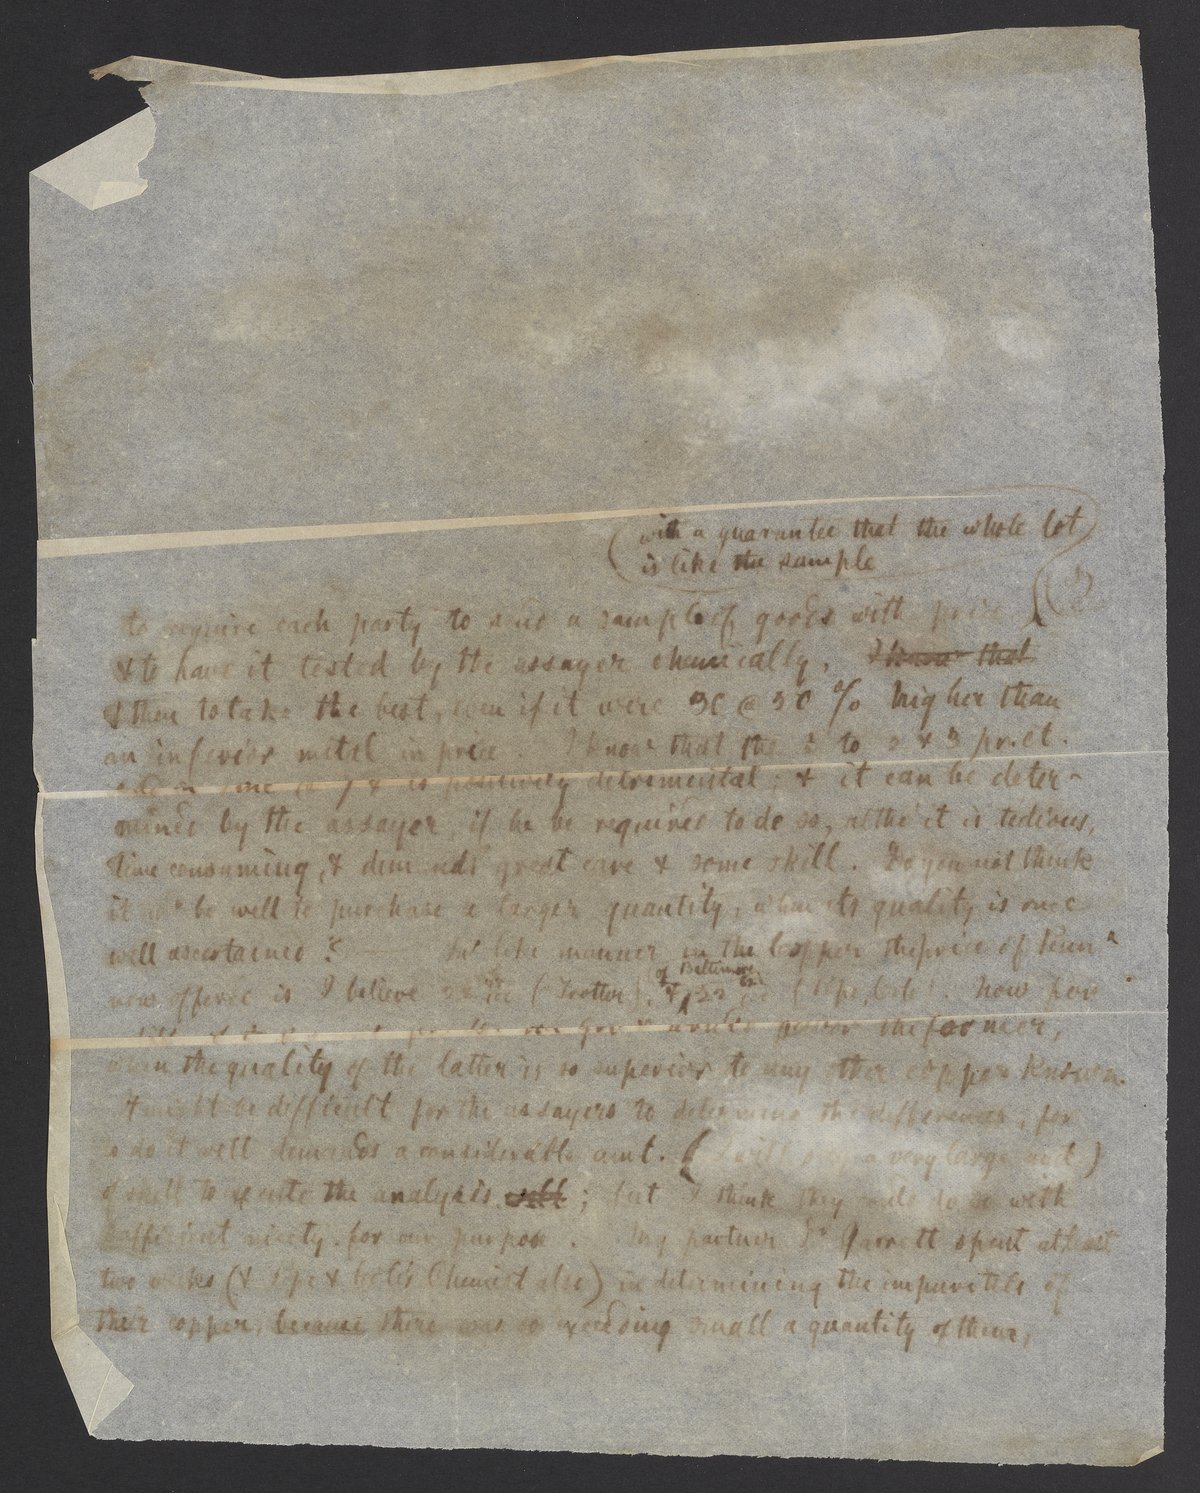 with a guarantee that the whole lot
is like the sample
to require each party to send a sample of goods with price
& to have it tested by the assayer chemically. I know that
& then to take the best, even if it were 30 @ 50 % higher than
an inferior metal in price. I know that the to 2 & 3 pr. ct.
is positively detrimental; & it can be deter-
mined by the assayer, if he be required to do so, altho' it is tedious,
time consuming, & demands great care & some skill. Do you not think
it be well to purchase a larger quantity, when its quality is once
well ascertained? In like manner in the Copper the price of
of Baltimore
now offered is I believe (Trotter), & 22 Now
the former,
when the quality of the latter is so superior to any other copper known.
It might be difficult for the assayers to determine the differences, for
to do it well demands a considerable amt. (I will say a very large amt.)
of skill to execute the analysis well; but I think they could do so with
sufficient nicety for our purpose. My partner Dr Garrett spent at least
two weeks (& Pope & Cole's Chemist also) in determining the impurities of
their copper, because there was so exceeding small a quantity of them,